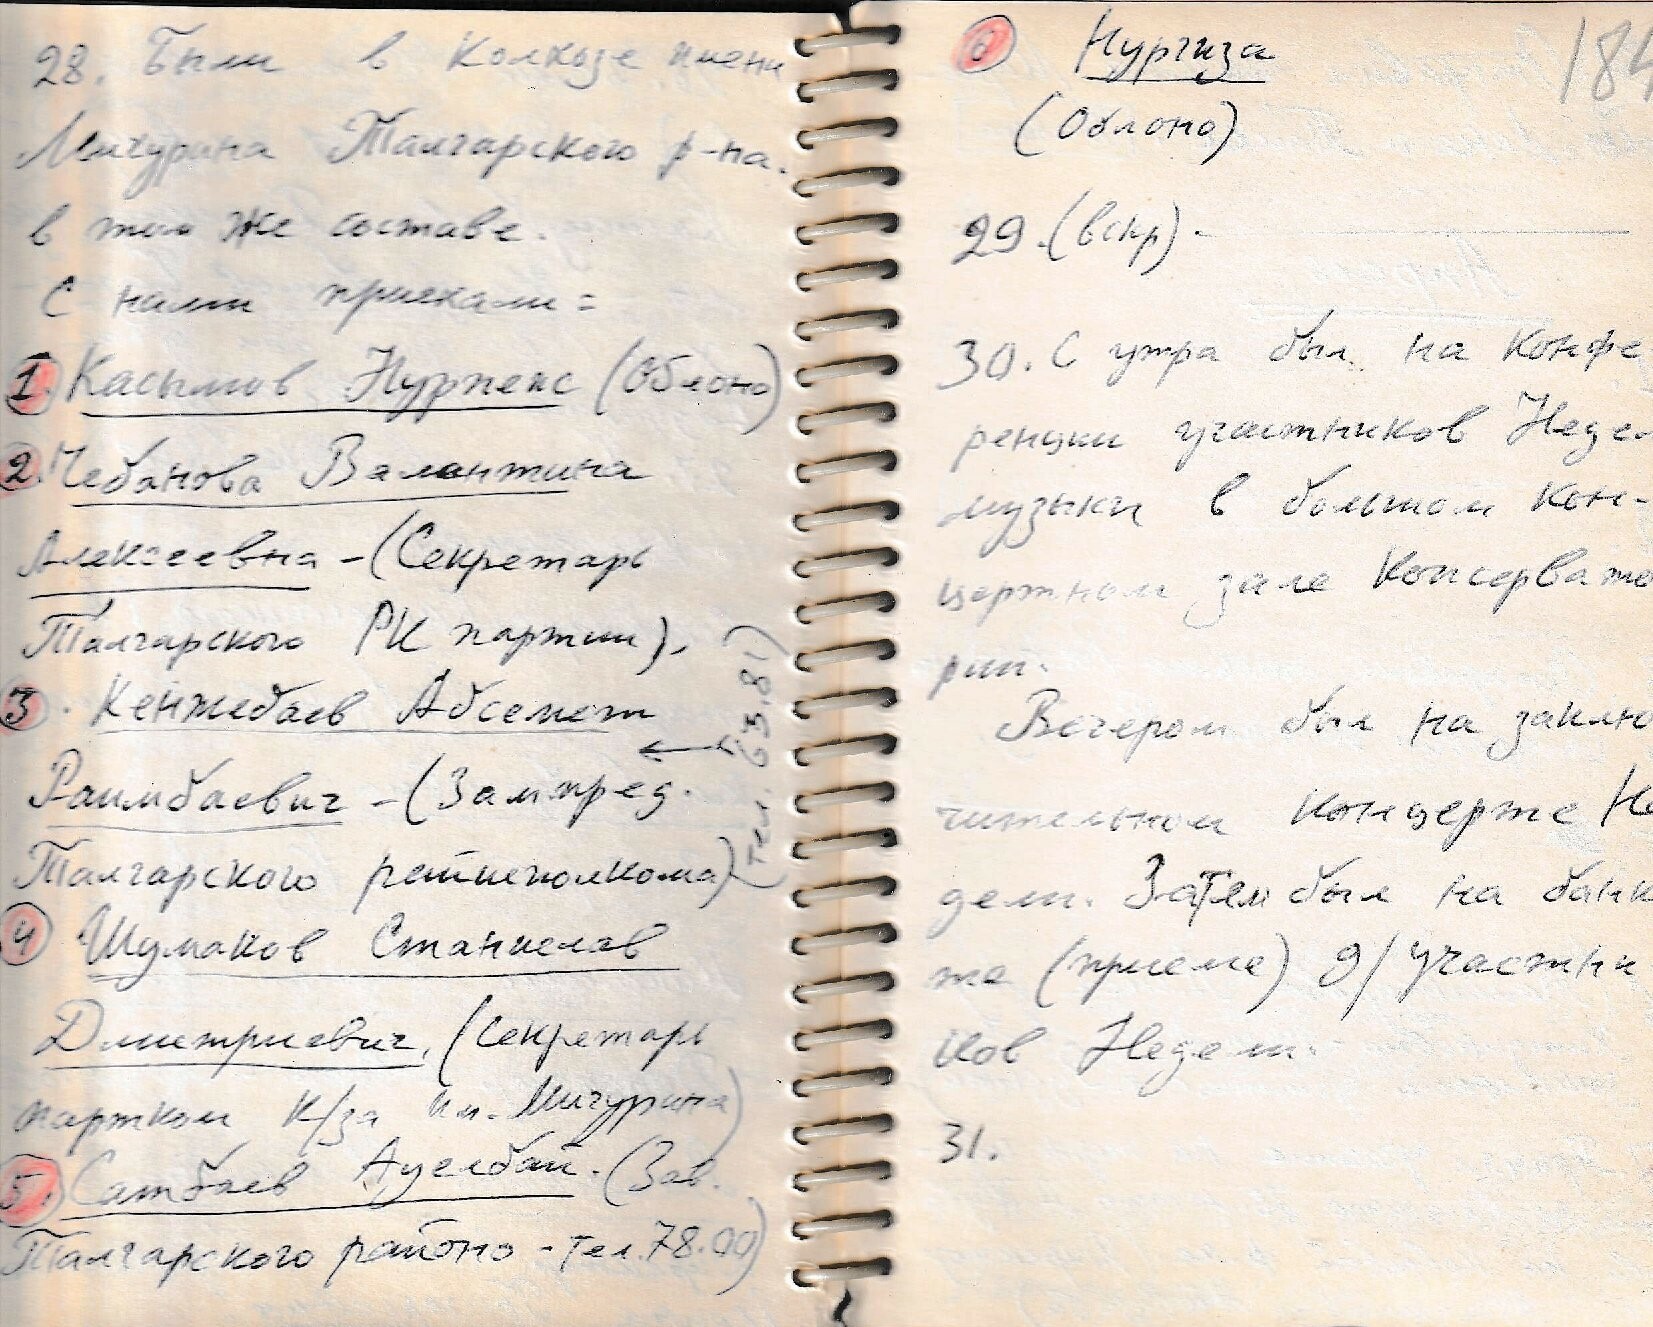 28. Были в колхозе имени
Мичурина Талгарского р-на.
в том же составе.
С нами приехали:
1. Касымов Нурпеис (Облоно)
2. Чебанова Валентина
Алексеевна – (Секретарь
Талгарского РК партии),
3. Кенжебаев Абсемет
Раимбаевич – (Зампред.
Талгарского райисполкома)
(тел. 63.81)
4 Шумаков Станислав
Дмитриевич, (Секретарь
партком к/за им. Мичурина)
5. Сатбаев Ауелбай. (Зав.
Талгарского районо – тел. 78.00)
6 Нургиза
(Облоно)
184
29. (вскр). –
30. С утра был на конфе
ренции участников Недел
музыки в большом кон-
цертном зале Консервато
рии.
Вечером был на заклю
чительном концерте Не
дели. Затем был на банк
те (приеме) д/участни
ков Недели.
31.